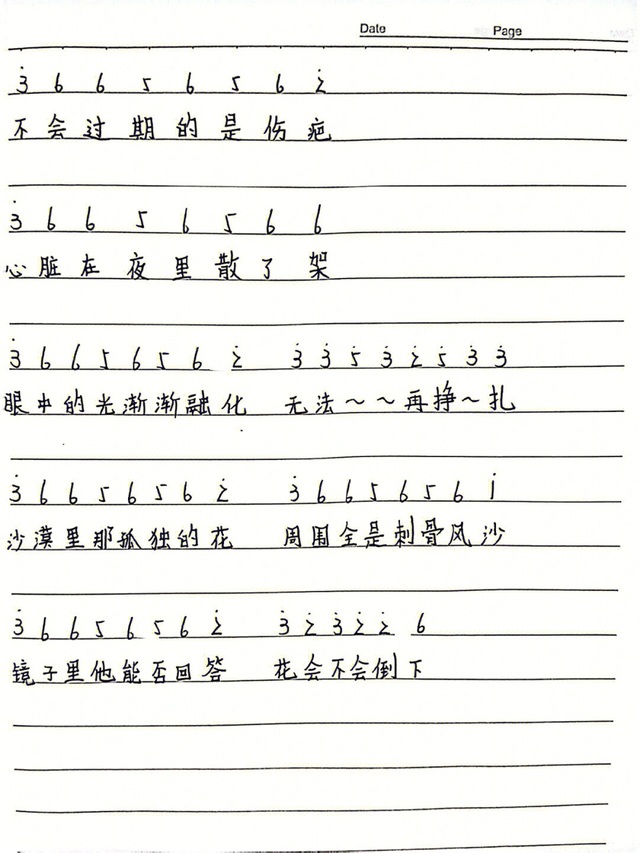 Date Page
3̇ 6 6 5 6 5 6 2̇
不会过期的是伤疤
3̇ 6 6 5 6 5 6 6
心脏在夜里散了架
3̇ 6 6 5 6 5 6 2̇ 3̇ 3̇ 5̇ 3̇ 2̇ 5̇ 3̇ 3̇
眼中的光渐渐融化 无法~~再挣~扎
3̇ 6 6 5 6 5 6 2̇ 3̇ 6 6 5 6 5 6 1̇
沙漠里那孤独的花 周围全是刺骨风沙
3̇ 6 6 5 6 5 6 2̇ 3̇ 2̇ 3̇ 2̇ 2̇ 6
镜子里他能否回答 花会不会倒下